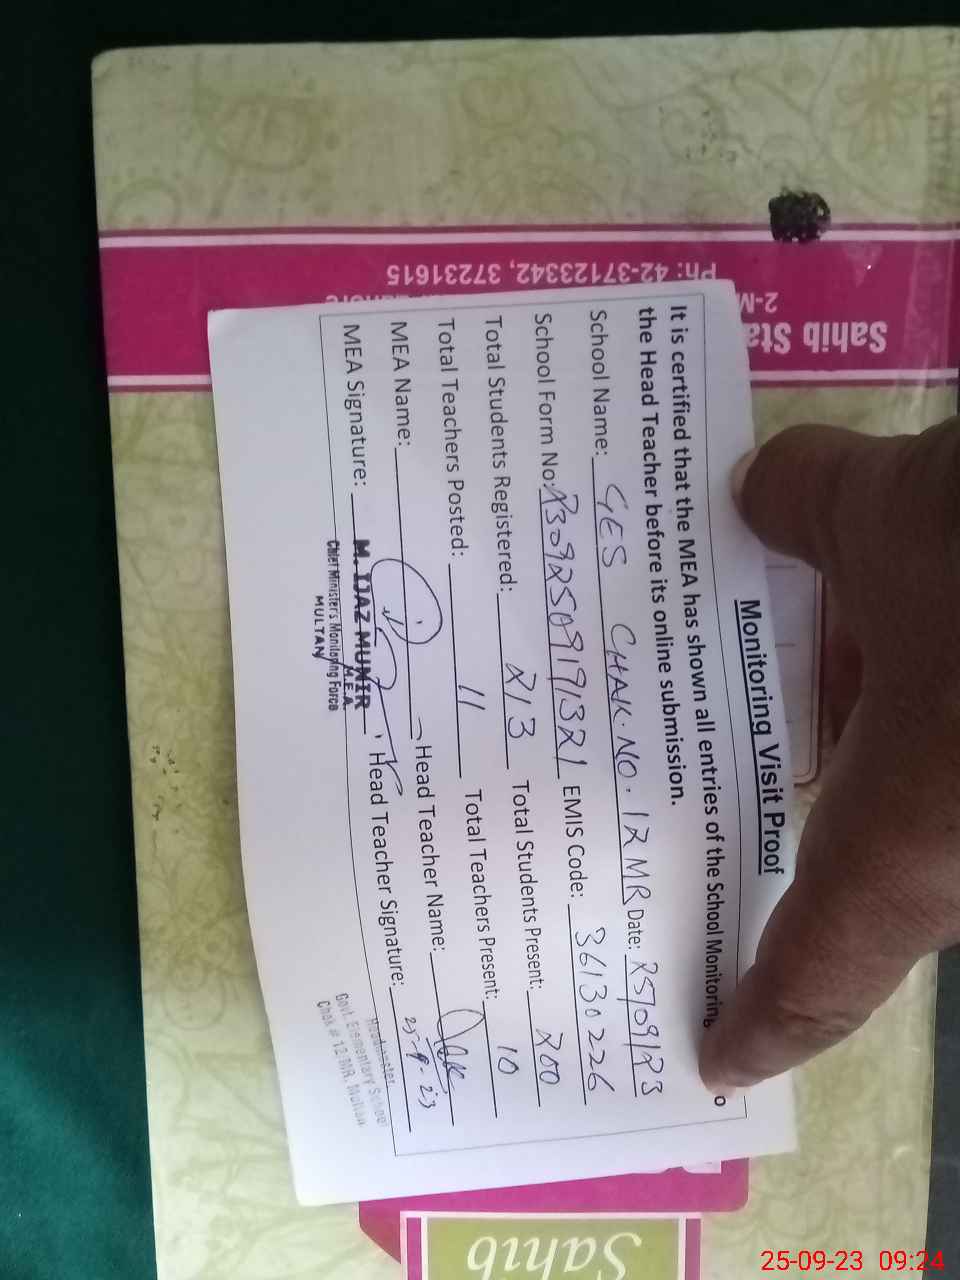 Monitoring Visit Proof
It is certified that the MEA has shown all entries of the School Monitoring
the Head Teacher before its online submission.
School Name: GES CHAK.NO.12 MR Date: 25/09/23
School Form No: 23092509191321 EMIS Code: 36130226
Total Students Registered: 213 Total Students Present: 200
Total Teachers Posted: 11 Total Teachers Present: 10
MEA Name: Head Teacher Name:
MEA Signature: Head Teacher Signature: 25-9-23
M. IJAZ MUNIR
M.E.A.
Chief Minister's Monitoring Force
MULTAN
Headmaster
Govt. Elementary School
Chak # 12/MR, Multan
Sahib Sta
2-M
Ph: 42-37123342, 37231615
Sahib
25-09-23 09:24